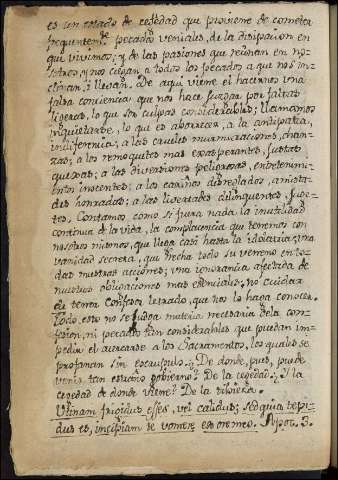 es un estado de cegedad que proviene de cometer
frequentemte pecados veniales, de la disipacion en
que vivimos; y de las pasiones que reynan en no-
sotros, y nos ciegan a todos los pecados a que nos in-
clinan, i llevan. De aqui viene el hacernos una
falsa conciencia que nos hace juzgar por faltas
ligeras, lo que son culpas considerables; llamamos
inquietarse, lo que es aborrecer, a la antipatia,
indiferencia; a las crueles murmuraciones, chan-
zas; a los remoquetes mas exasperantes, justas
quexas; a las diversiones peligrosas, entretenimi-
entos inocentes; a los cariños desreglados, amista-
des honradas; a las libertades delinquentes, jugue-
tes. Contamos como si fuera nada la inutilidad
continua de la vida, la complacencia que tenemos con
nosotros mismos, que llega casi hasta la idolatria; una
vanidad secreta, que hecha todo su veneno en to-
das nuestras acciones; una ignorancia afectada de
nuestras obligaciones mas esenciales; no cuidar
de tener Confesor letrado, que nos lo haga conocer.
Todo esto no se juzga materia necesaria de la con-
fesion, ni pecados tan considerables que puedan im-
pedir el acercarse a los Sacramentos, los quales se
profanan sin escrupulo. ¿De donde, pues, puede
venir tan estraño gobierno? De la cegedad. ¿I la
cegedad de donde viene? De la tibieza.
Utinam frigidus esses, vel calidus; sed quia tepi-
dus es, incipiam te vomere ex ore meo. Apoc. 3.